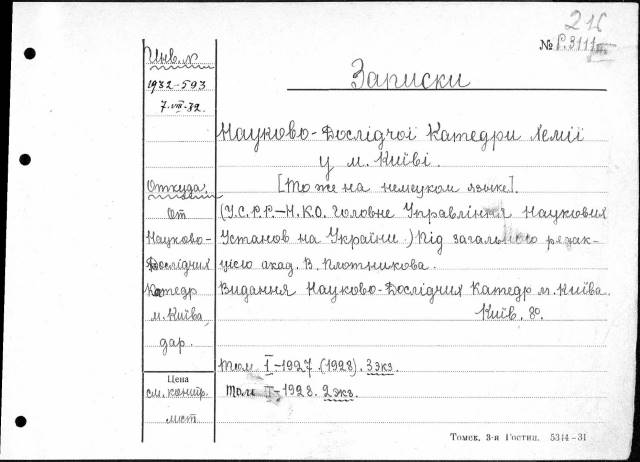 216
№ Р.3111
Инв. №
1932-593
7-VIII-32.
Записки
Науково-Дослідчої Катедри Хемії
у м. Київі.
[То же на немецком языке].
Откуда
От
Науково-
Дослідчих
Катедр
м. Київа,
дар.
(У.С.Р.Р.—Н.К.О. Головне Управління Наукових
Установ на Україні.) Під загальною редак-
цією акад. В. Плотникова.
Видання Науково-Дослідчих Катедр м. Київа.
Київ. 8о.
Том I-1927.(1928). 3 экз.
Том II-1928. 2 экз.
Цена
см. контр.
лист.
Томск. 3-я Гостип. 5314-31